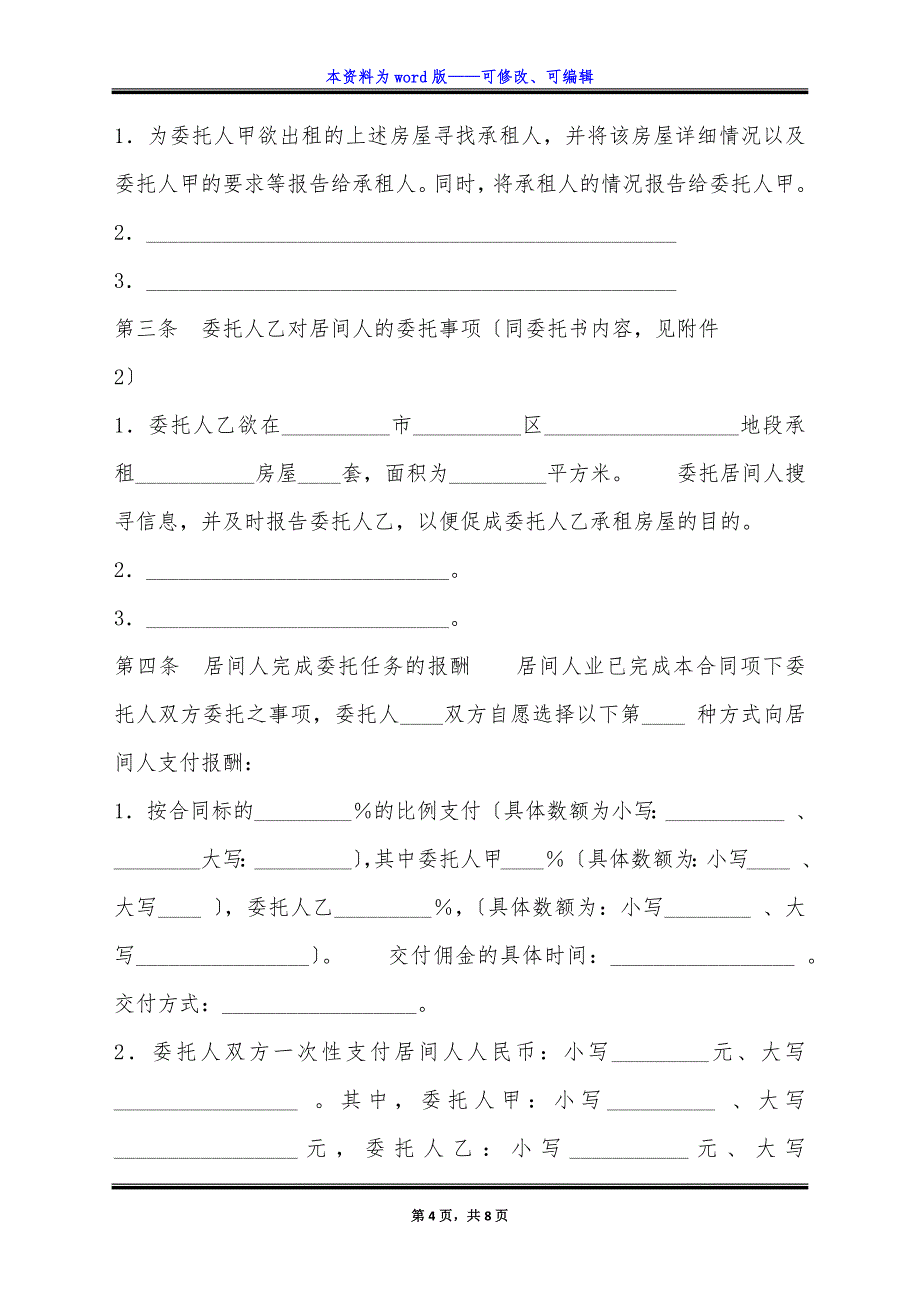 本资料为 word 版——可修改、可编辑
1．为委托人甲欲出租的上述房屋寻找承租人，并将该房屋详细情况以及
委托人甲的要求等报告给承租人。同时，将承租人的情况报告给委托人甲。
2．_________________________________________________
3．_________________________________________________
第三条　委托人乙对居间人的委托事项〔同委托书内容，见附件
2〕
1．委托人乙欲在__________市__________区__________________地段承
租___________房屋____套，面积为_________平方米。　　委托居间人搜
寻信息，并及时报告委托人乙，以便促成委托人乙承租房屋的目的。
2．____________________________。
3．____________________________。
第四条　居间人完成委托任务的报酬　　居间人业已完成本合同项下委
托人双方委托之事项，委托人____双方自愿选择以下第____ 种方式向居
间人支付报酬：
1．按合同标的_________％的比例支付〔具体数额为小写：___________ 、
________大写：_________〕，其中委托人甲____％〔具体数额为：小写____ 、
大写____ 〕，委托人乙_________％，〔具体数额为：小写________ 、大
写________________〕。　　交付佣金的具体时间：_________________ 。
交付方式：__________________。
2．委托人双方一次性支付居间人人民币：小写_________元、大写
_________________ 。其中，委托人甲：小写__________ 、大写
_________________元，委托人乙：小写___________元、大写
第 4 页，共 8 页